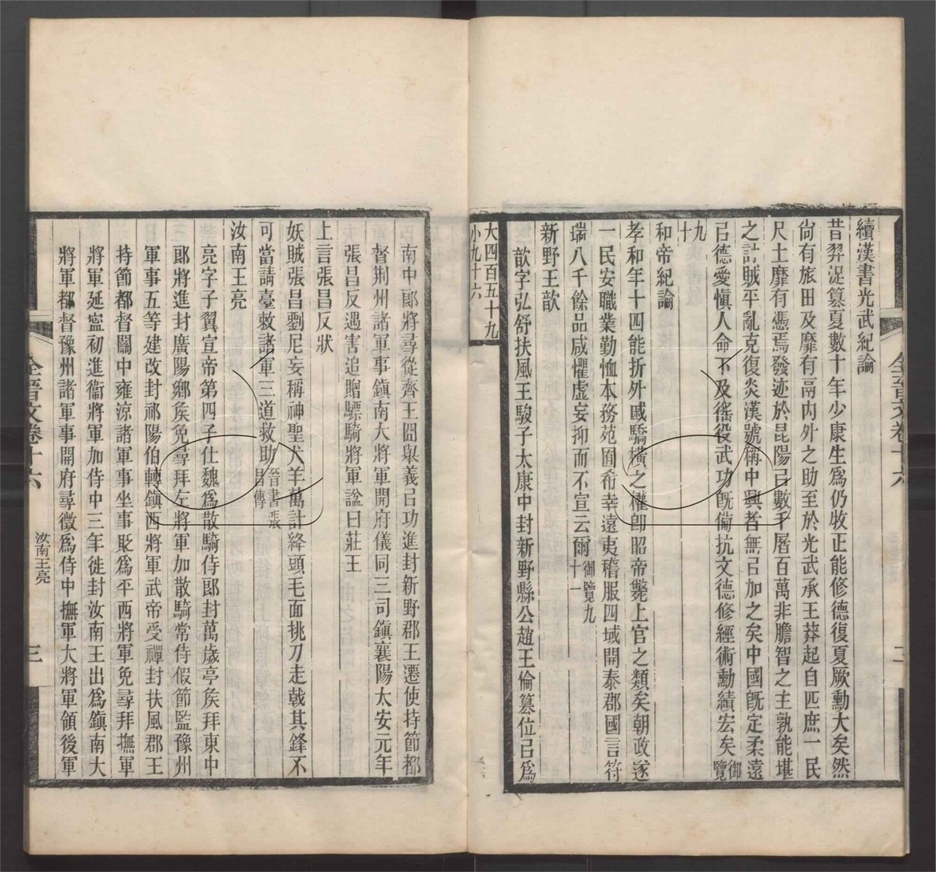 續漢書光武紀論
昔羿浞篡夏數十年少康生爲仍牧正能修德復夏厥勳大矣然
尚有旅田及靡有鬲内外之助至於光武承王莽起自匹庶一民
尺土靡有憑焉發迹於昆陽㠯數千屠百萬非膽智之主孰能堪
之討賊平亂克復炎漢號稱中興者無㠯加之矣中國旣定柔遠
㠯德愛愼人命下及徭役武功旣備抗文德修經術勳績宏矣御覽
九十
和帝紀論
孝和年十四能折外戚驕橫之權卽昭帝斃上官之類矣朝政遂
一民安職業勤恤本務苑囿希幸遠夷稽服四域開泰郡國言符
瑞八千餘品咸懼虛妄抑而不宣云爾御覽九十一
新野王歆
歆字弘舒扶風王駿子太康中封新野縣公趙王倫篡位㠯爲
大四百五十九
小九十六
全晉文卷十六
南中郎將尋從齊王冏舉義㠯功進封新野郡王遷使持節都
督荆州諸軍事鎭南大將軍開府儀同三司鎭襄陽太安元年
張昌反遇害追贈驃騎將軍諡曰莊王
上言張昌反狀
妖賊張昌劉尼妄稱神聖犬羊萬計絳頭毛面挑刀走戟其鋒不
可當請臺敕諸軍三道救助晉書張昌傳
汝南王亮
亮字子翼宣帝第四子仕魏爲散騎侍郎封萬歲亭矦拜東中
郎將進封廣陽鄉矦免尋拜左將軍加散騎常侍假節監豫州
軍事五等建改封祁陽伯轉鎭西將軍武帝受禪封扶風郡王
持節都督關中雍涼諸軍事坐事貶爲平西將軍免尋拜撫軍
將軍延寍初進衞將軍加侍中三年徙封汝南王出爲鎭南大
將軍都督豫州諸軍事開府尋徵爲侍中撫軍大將軍領後軍
全晉文卷十六
汝南王亮
三